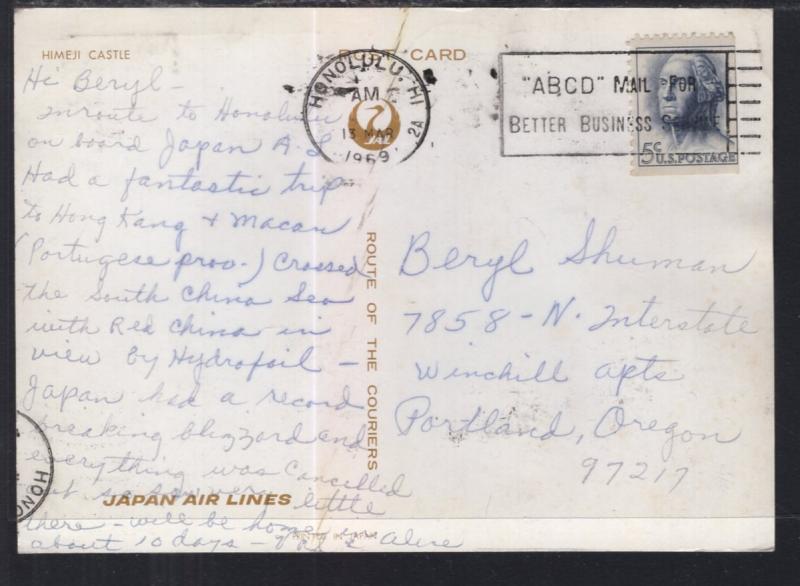 HIMEJI CASTLE
POST CARD
Hi Beryl -
Enroute to Honolulu
on board Japan A.L.
Had a fantastic trip
to Hong Kong + Macau
(Portugese prov.) Crossed
the South China Sea
with Red China in
view by Hydrofoil -
Japan had a record
breaking blizzard and
everything was cancelled
but so saw very little
there - will be home in
about 10 days - Val & Alice
JAPAN AIR LINES
PRINTED IN JAPAN
ROUTE OF THE COURIERS
HONOLULU, HI
AM
13 MAR
1969
2A
JAL
"ABCD" MAIL FOR
BETTER BUSINESS SERVICE
5c U.S. POSTAGE
Beryl Shuman
7858 - N. Interstate
Winchill apts
Portland, Oregon
97217
HONO